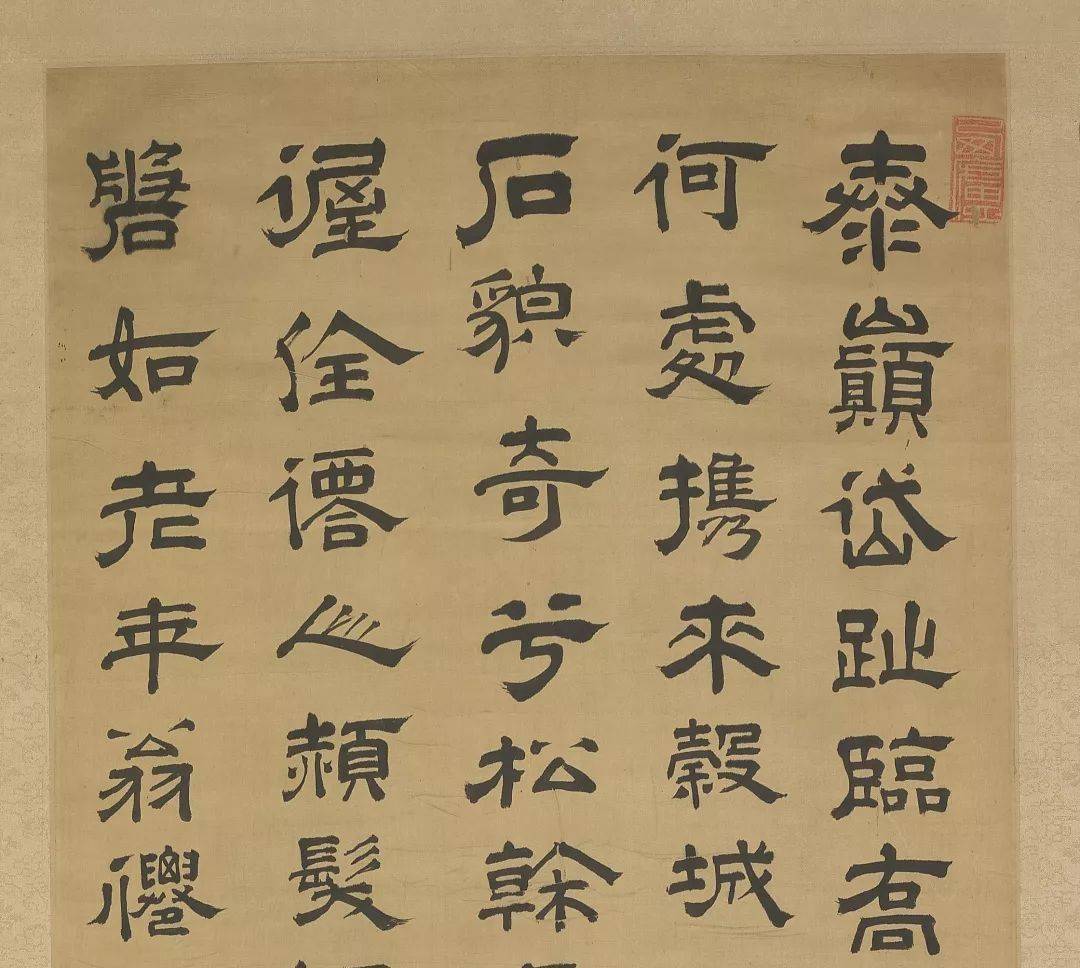 泰巔岱趾臨高
何處携來穀城
石貌奇兮松幹
偓佺頳髮
如老年翁